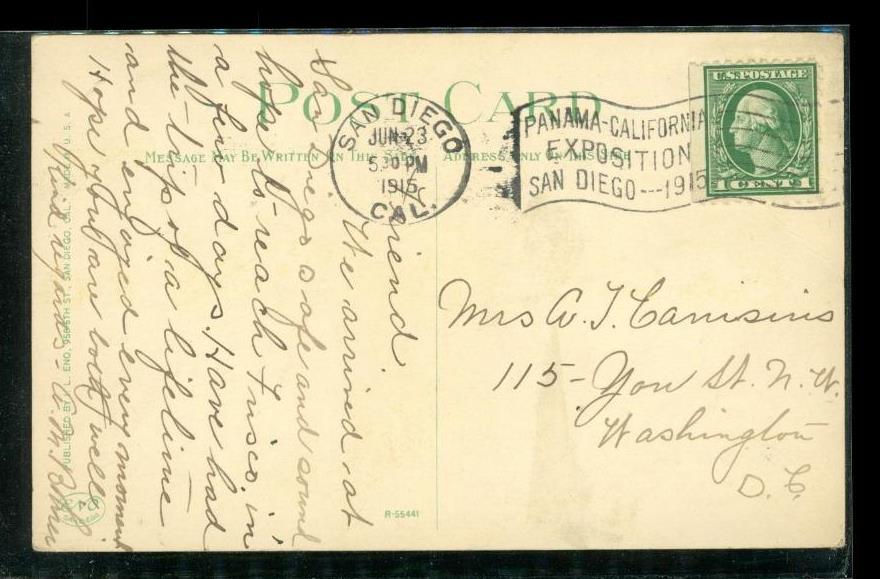 POST CARD
MESSAGE MAY BE WRITTEN ON THIS SIDE
ADDRESS ONLY ON THIS SIDE
SAN DIEGO
JUN 23
5:30 PM
1915
CAL.
PANAMA-CALIFORNIA
EXPOSITION
SAN DIEGO---1915
U.S. POSTAGE
1 CENT 1
riend.
We arrived at
San Diego safe and sound
hope to reach Frisco in
a few days. Have had
the trip of a lifetime
and enjoyed every moment
Hope you are both well
Kind regards -
Mrs A. T.
115 - You St. N.W.
Washington
D.C.
PUBLISHED BY I. L. ENO, ST., SAN DIEGO, CAL. MADE IN U.S.A.
R-55441